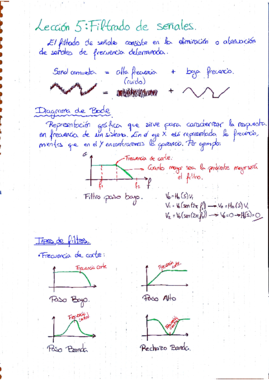 Lección 5: Filtrado de señales.
El filtrado de señales consiste en la eliminación o atenuación
de señales de frecuencia determinada.
= alta frecuencia + baja frecuencia.
(ruido)
= +
Diagrama de Bode.
Representación gráfica que sirve para caracterizar la respuesta
en frecuencia de un sistema. En el eje X está representada la frecuencia,
mientras que en el Y encontramos la ganancia. Por ejemplo:
G
Frecuencia de corte.
Cuanto mayor sea la pendiente mejor será
el filtro.
f
Filtro paso bajo.
Tipos de filtros.
• Frecuencia de corte:
Frecuencia corte
Frecuencia corte
Paso Bajo.
Paso Alto.
Paso Banda.
Rechazo Banda.